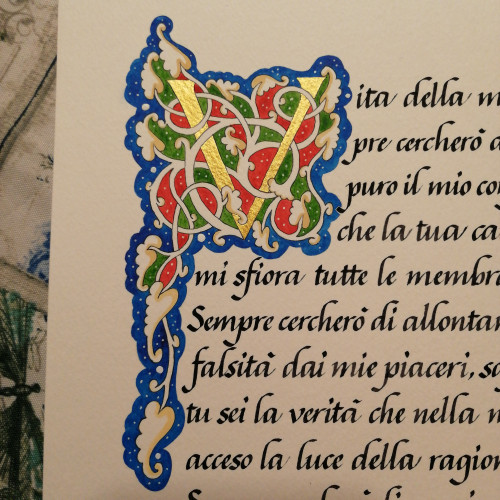 Vita della m
pre cercherò d
puro il mio co
che la tua ca
mi sfiora tutte le membra
Sempre cercherò di allontan
falsità dai mie piaceri, sa
tu sei la verità che nella m
acceso la luce della ragion